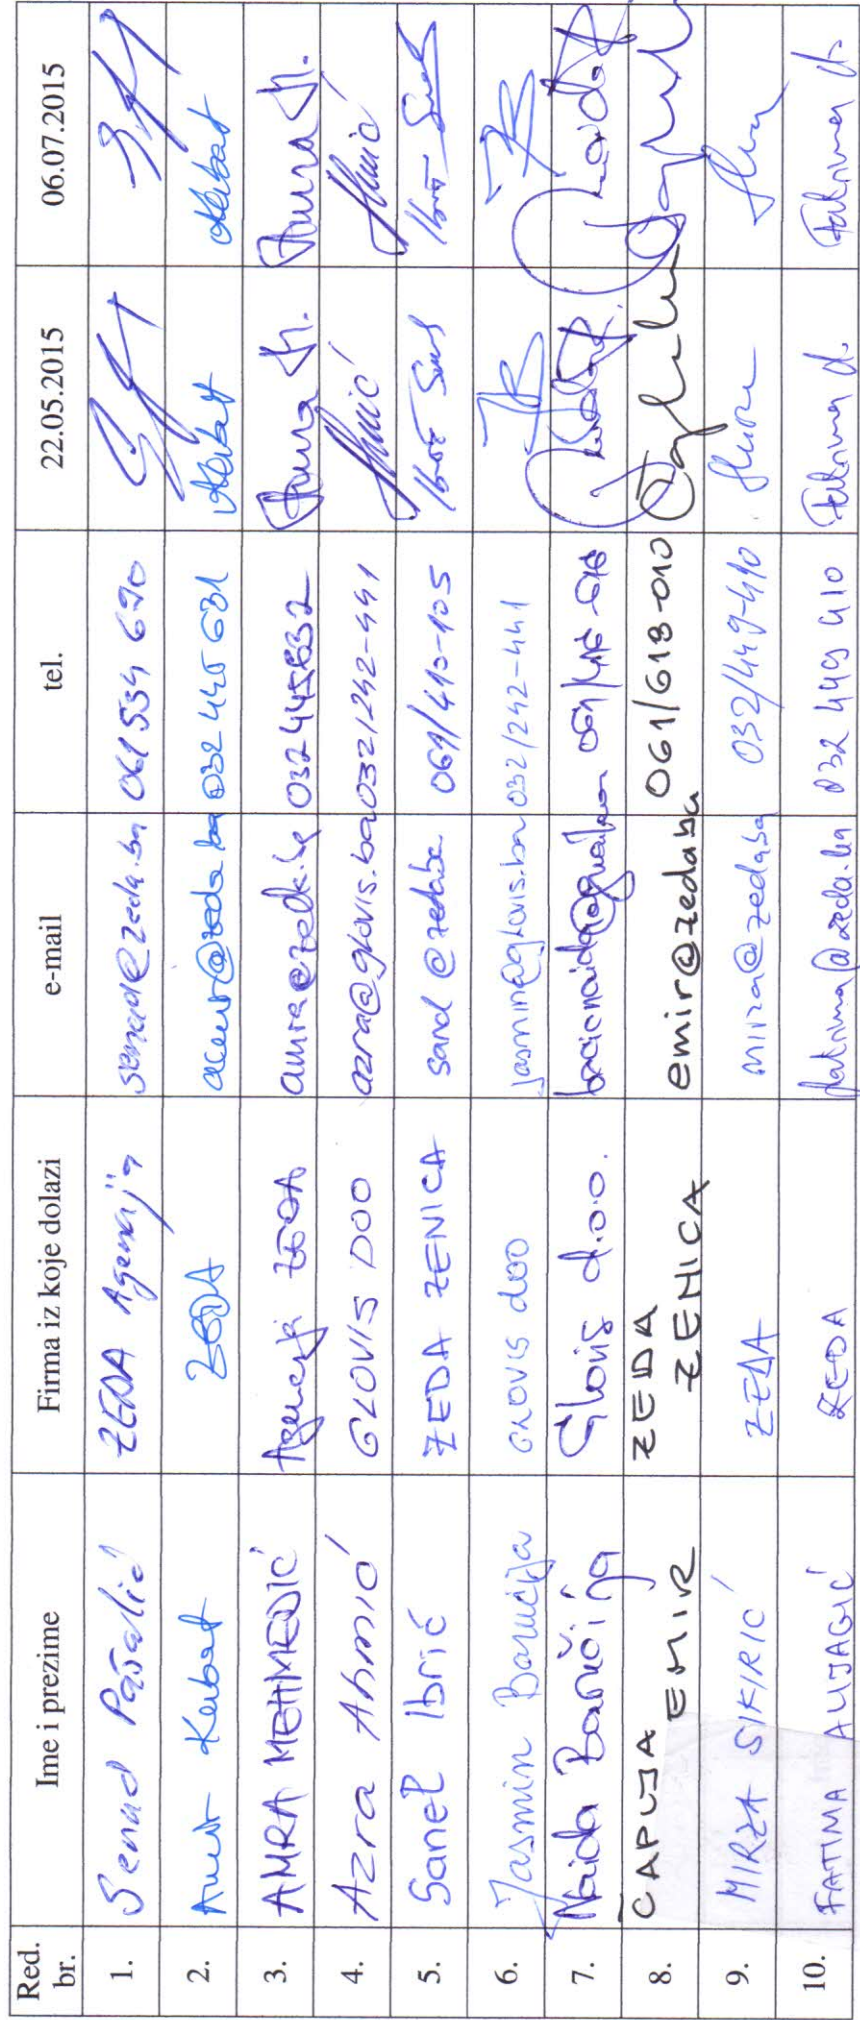 Red. br. Ime i prezime Firma iz koje dolazi e-mail tel. 22.05.2015 06.07.2015
1. Senad Pašalić ZEDA Agencija senad@zeda.ba 061 534 690
2. ZEDA 032 445 631
3. AMRA MEHMEDIĆ Agencija ZEDA amra@zeda.ba 032445632 Amra M. Amra M.
4. Azra Ahmić GLOVIS DOO azra@glovis.ba 032/242-441 Ahmić Ahmić
5. Sanel Ibrić ZEDA ZENICA sanel@zeda.ba 061/410-105 Ibrić Sanel Ibrić Sanel
6. Jasmin Baručija GLOVIS doo jasmin@glovis.ba 032/242-441
7. Naida Baručija Glovis d.o.o.
8. ČAPLJA EMIR ZEDA ZENICA emir@zeda.ba 061/618-010
9. MIRZA SIKIRIĆ ZEDA mirza@zeda.ba 032/449-410
10. FATIMA ALIJAGIĆ ZEDA fatima@zeda.ba 032 449 410 Fatima A. Fatima A.